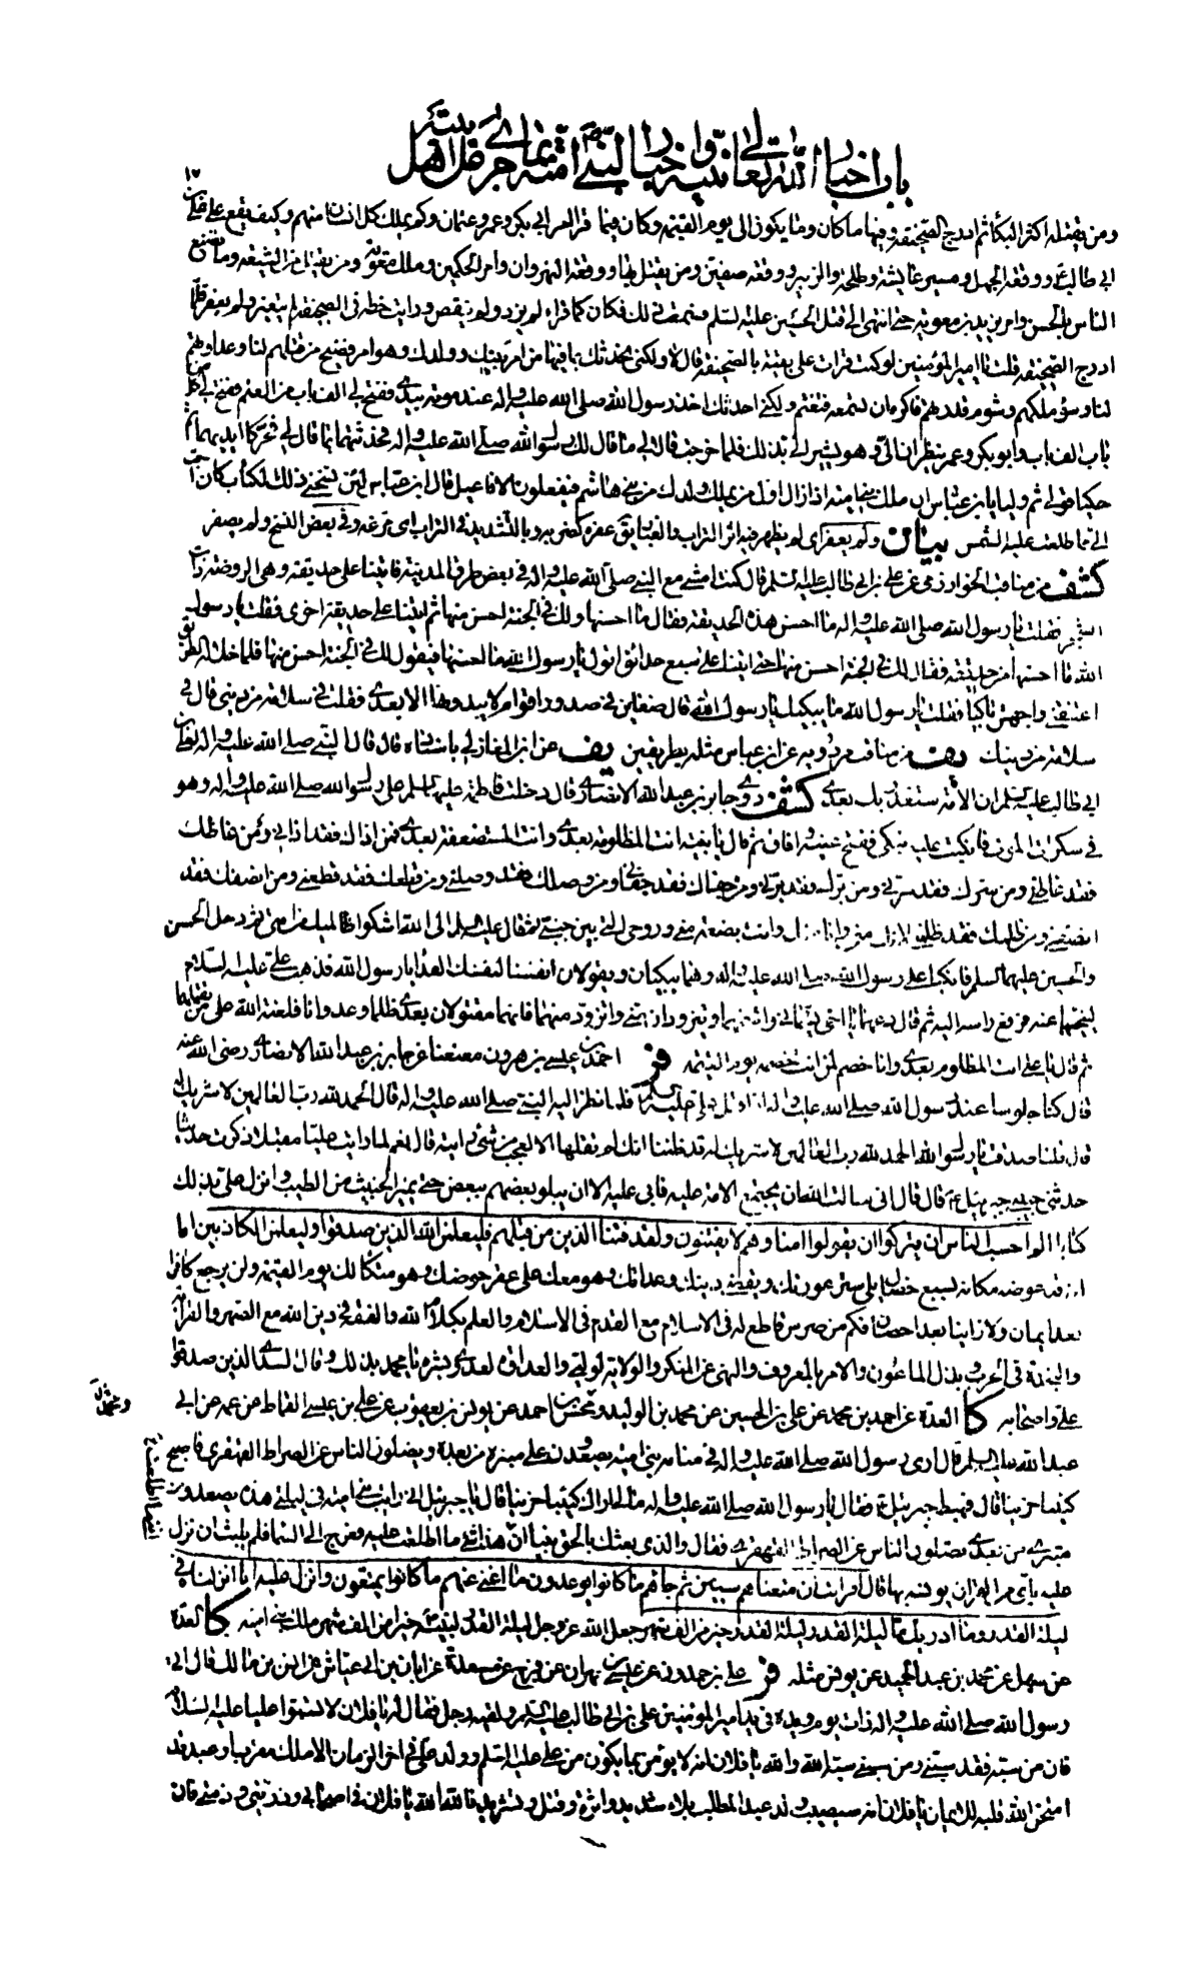 باب اخبار الله تعالى نبيه واخبار النبى امته بما جرى على اهل بيته
١٧
ومن يقتله اكثر البكاء ثم ادرج الصحيفة وفيها ما كان وما يكون الى يوم القيمة وكان فيما قرأ امر ابى بكر وعمر وعثمان وكم يملك كل انسان منهم وكيف يقع على على بن
ابى طالب ووقعة الجمل ومسير عايشة وطلحة والزبير ووقعة صفين ومن يقتل بها ووقعة النهروان وامر الحكمين وملك معوية ومن يقتل من الشيعة وما تصنع
الناس بالحسن وامر يزيد بن معوية حتى انتهى الى قتل الحسين عليه السلم فسمعت ذلك فكان كما قرأ لم يزد ولم ينقص ورايت خطه فى الصحيفة لم يتغير ولم يعفر فلما
ادرج الصحيفة قلت يا امير المؤمنين لو كنت قرأت على بقية الصحيفة قال لا ولكنى محدثك بما فيها من امر بيتك وولدك وهو امر فضيع من قتلهم لنا وعداوتهم
لنا وسوء ملكهم وشوم قدرتهم فاكره ان تسمعه فتغتم ولكنى احدثك اخذ رسول الله صلى الله عليه واله عند موته بيدى ففتح لى الف باب من العلم ففتح لى من كل
باب الف باب وابو بكر وعمر ينظران الى وهو يشير الى بذلك فلما خرجت قالا لى ما قال لك رسول الله صلى الله عليه واله فحدثتهما بما قال لى فحركا ايديهما ثم
حكيا قولى ثم وليا يا ابن عباس ان ملك بنى امية اذا زال اول من يملك ولدك من بنى هاشم فيفعلون الافاعيل قال ابن عباس لئن نسخنى ذلك الكتاب كان احب
الى مما طلعت عليه الشمس بيان ولم يعفر اى لم يظهر فيه اثر التراب والغبار يق عفره كضربه وبالتشديد فى التراب اى مرغه وفى بعض النسخ ولم يصفر
كشف من مناقب الخوارزمى عن على بن ابى طالب عليه السلم قال كنت امشى مع النبى صلى الله عليه واله فى بعض طرق المدينة فاتينا على حديقة وهى الروضة ذات
الشجر فقلت يا رسول الله صلى الله عليه واله ما احسن هذه الحديقة فقال ما احسنها ولك فى الجنة احسن منها ثم اتينا على حديقة اخرى فقلت يا رسول
الله ما احسنها من حديقة فقال لك فى الجنة احسن منها حتى اتينا على سبع حدائق اقول يا رسول الله ما احسنها فيقول لك فى الجنة احسن منها فلما خلا له الطريق
اعتنقنى واجهش باكيا فقلت يا رسول الله ما يبكيك يا رسول الله قال ضغاين فى صدور اقوام لا يبدونها الا بعدى فقلت فى سلامة من دينى قال فى
سلامة من دينك يف من مناقب ابن مردويه عن ابن عباس مثله بطريقين يف عن ابن المغازلى باسناده قال قال النبى صلى الله عليه واله لعلى بن
ابى طالب عليه السلم ان الامة ستغدر بك بعدى كشف روى جابر بن عبد الله الانصارى قال دخلت فاطمة عليها السلم على رسول الله صلى الله عليه واله وهو
فى سكرات الموت فانكبت عليه تبكى ففتح عينه وافاق ثم قال يا بنية انت المظلومة بعدى وانت المستضعفة بعدى فمن اذاك فقد اذانى ومن غاظك
فقد غاظنى ومن سرك فقد سرنى ومن برك فقد برنى ومن جفاك فقد جفانى ومن وصلك فقد وصلنى ومن قطعك فقد قطعنى ومن انصفك فقد
انصفنى ومن ظلمك فقد ظلمنى لانك منى وانا منك وانت بضعة منى وروحى التى بين جنبى ثم قال عليه السلم الى الله اشكو ظالميك من امتى ثم دخل الحسن
والحسين عليهما السلم فانكبا على رسول الله صلى الله عليه واله وهما يبكيان ويقولان انفسنا لنفسك الفداء يا رسول الله فذهب على عليه السلام
لينحيهما عنه فرفع راسه اليه ثم قال دعهما يا اخى يشمانى واشمهما ويتزودان منى واتزود منهما فانهما مقتولان بعدى ظلما وعدوانا فلعنة الله على من يقتلهما
ثم قال يا على انت المظلوم بعدى وانا خصم لمن انت خصمه يوم القيمة فر احمد بن عيسى بن هرون معنعنا عن جابر بن عبد الله الانصارى رضى الله عنه
قال كنا جلوسا عند رسول الله صلى الله عليه واله اذ اقبل على عليه السلم فلما نظر اليه النبى صلى الله عليه واله قال الحمد لله رب العالمين لا شريك له
قال قلنا صدقت يا رسول الله الحمد لله رب العالمين لا شريك له قد ظننا انك لم تقلها الا لعجب من شئ رايته قال نعم لما رايت عليا مقبلا ذكرت حديثا
حدثنى حبيبى جبرئيل ع قال قال انى سالت الله ان يجتمع الامة عليه فابى عليه الا ان يبلو بعضهم ببعض حتى يميز الخبيث من الطيب وانزل على بذلك
كتابا الم احسب الناس ان يتركوا ان يقولوا امنا وهم لا يفتنون ولقد فتنا الذين من قبلهم فليعلمن الله الذين صدقوا وليعلمن الكاذبين اما
انه قد عوضه مكانه بسبع خصال يلى ستر عورتك ويقضى دينك وعداتك وهو معك على عقر حوضك وهو متكا لك يوم القيمة ولن يرجع كافرا
بعد ايمان ولا زانيا بعد احصان فكم من ضرس قاطع له فى الاسلام مع القدم فى الاسلام والعلم بكلام الله والفقه فى دين الله مع الصهر والقرابة
والنجدة فى الحرب وبذل الماعون والامر بالمعروف والنهى عن المنكر والولاية لوليى والعداوة لعدوى بشره يا محمد بذلك وقال السدى الذين صدقوا
على واصحابه كا العدة عن احمد بن محمد عن على بن الحسين عن محمد بن الوليد ومحمد بن احمد عن يونس بن يعقوب عن على بن عيسى القماط عن عمه عن ابى
عبد الله عليه السلم قال ارى رسول الله صلى الله عليه واله فى منامه بنى امية يصعدون على منبره من بعده ويضلون الناس عن الصراط القهقرى فاصبح
كئيبا حزينا قال فهبط جبرئيل ع فقال يا رسول الله صلى الله عليه واله ما لى اراك كئيبا حزينا قال يا جبرئيل انى رايت بنى امية فى ليلتى هذه يصعدون
منبرى من بعدى يضلون الناس عن الصراط القهقرى فقال والذى بعثك بالحق نبيا ان هذا شئ ما اطلعت عليه فعرج الى السماء فلم يلبث ان نزل
عليه باى من القران يونسه بها قال افرايت ان متعناهم سنين ثم جاءهم ما كانوا يوعدون ما اغنى عنهم ما كانوا يمتعون وانزل عليه انا انزلناه فى
ليلة القدر وما ادريك ما ليلة القدر ليلة القدر خير من الف شهر جعل الله عز وجل ليلة القدر لنبيه خيرا من الف شهر ملك بنى امية كا العدة
عن سهل عن محمد بن عبد الحميد عن يونس مثله فر على بن حمدون عن مسعدة عن ابان بن ابى عياش عن انس بن مالك قال ان
رسول الله صلى الله عليه واله ذات يوم ويده فى يد امير المؤمنين على بن ابى طالب عليه السلم ولقيه رجل فقال له يا فلان لا تسبوا عليا عليه السلام
فان من سبه فقد سبنى ومن سبنى سبه الله والله يا فلان انه لا يؤمن بما يكون من على عليه السلم وولد على فى اخر الزمان الا ملك مقرب او عبد قد
امتحن الله قلبه للايمان يا فلان انه سيصيب ولد عبد المطلب بلاء شديد واثرة وقتل وتشريد فالله الله يا فلان فى اصحابى وذريتى وذمتى فان